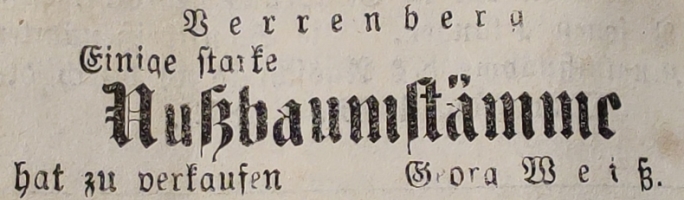 Verrenberg
Einige starke
Nußbaumstämme
hat zu verkaufen Georg Weiß.